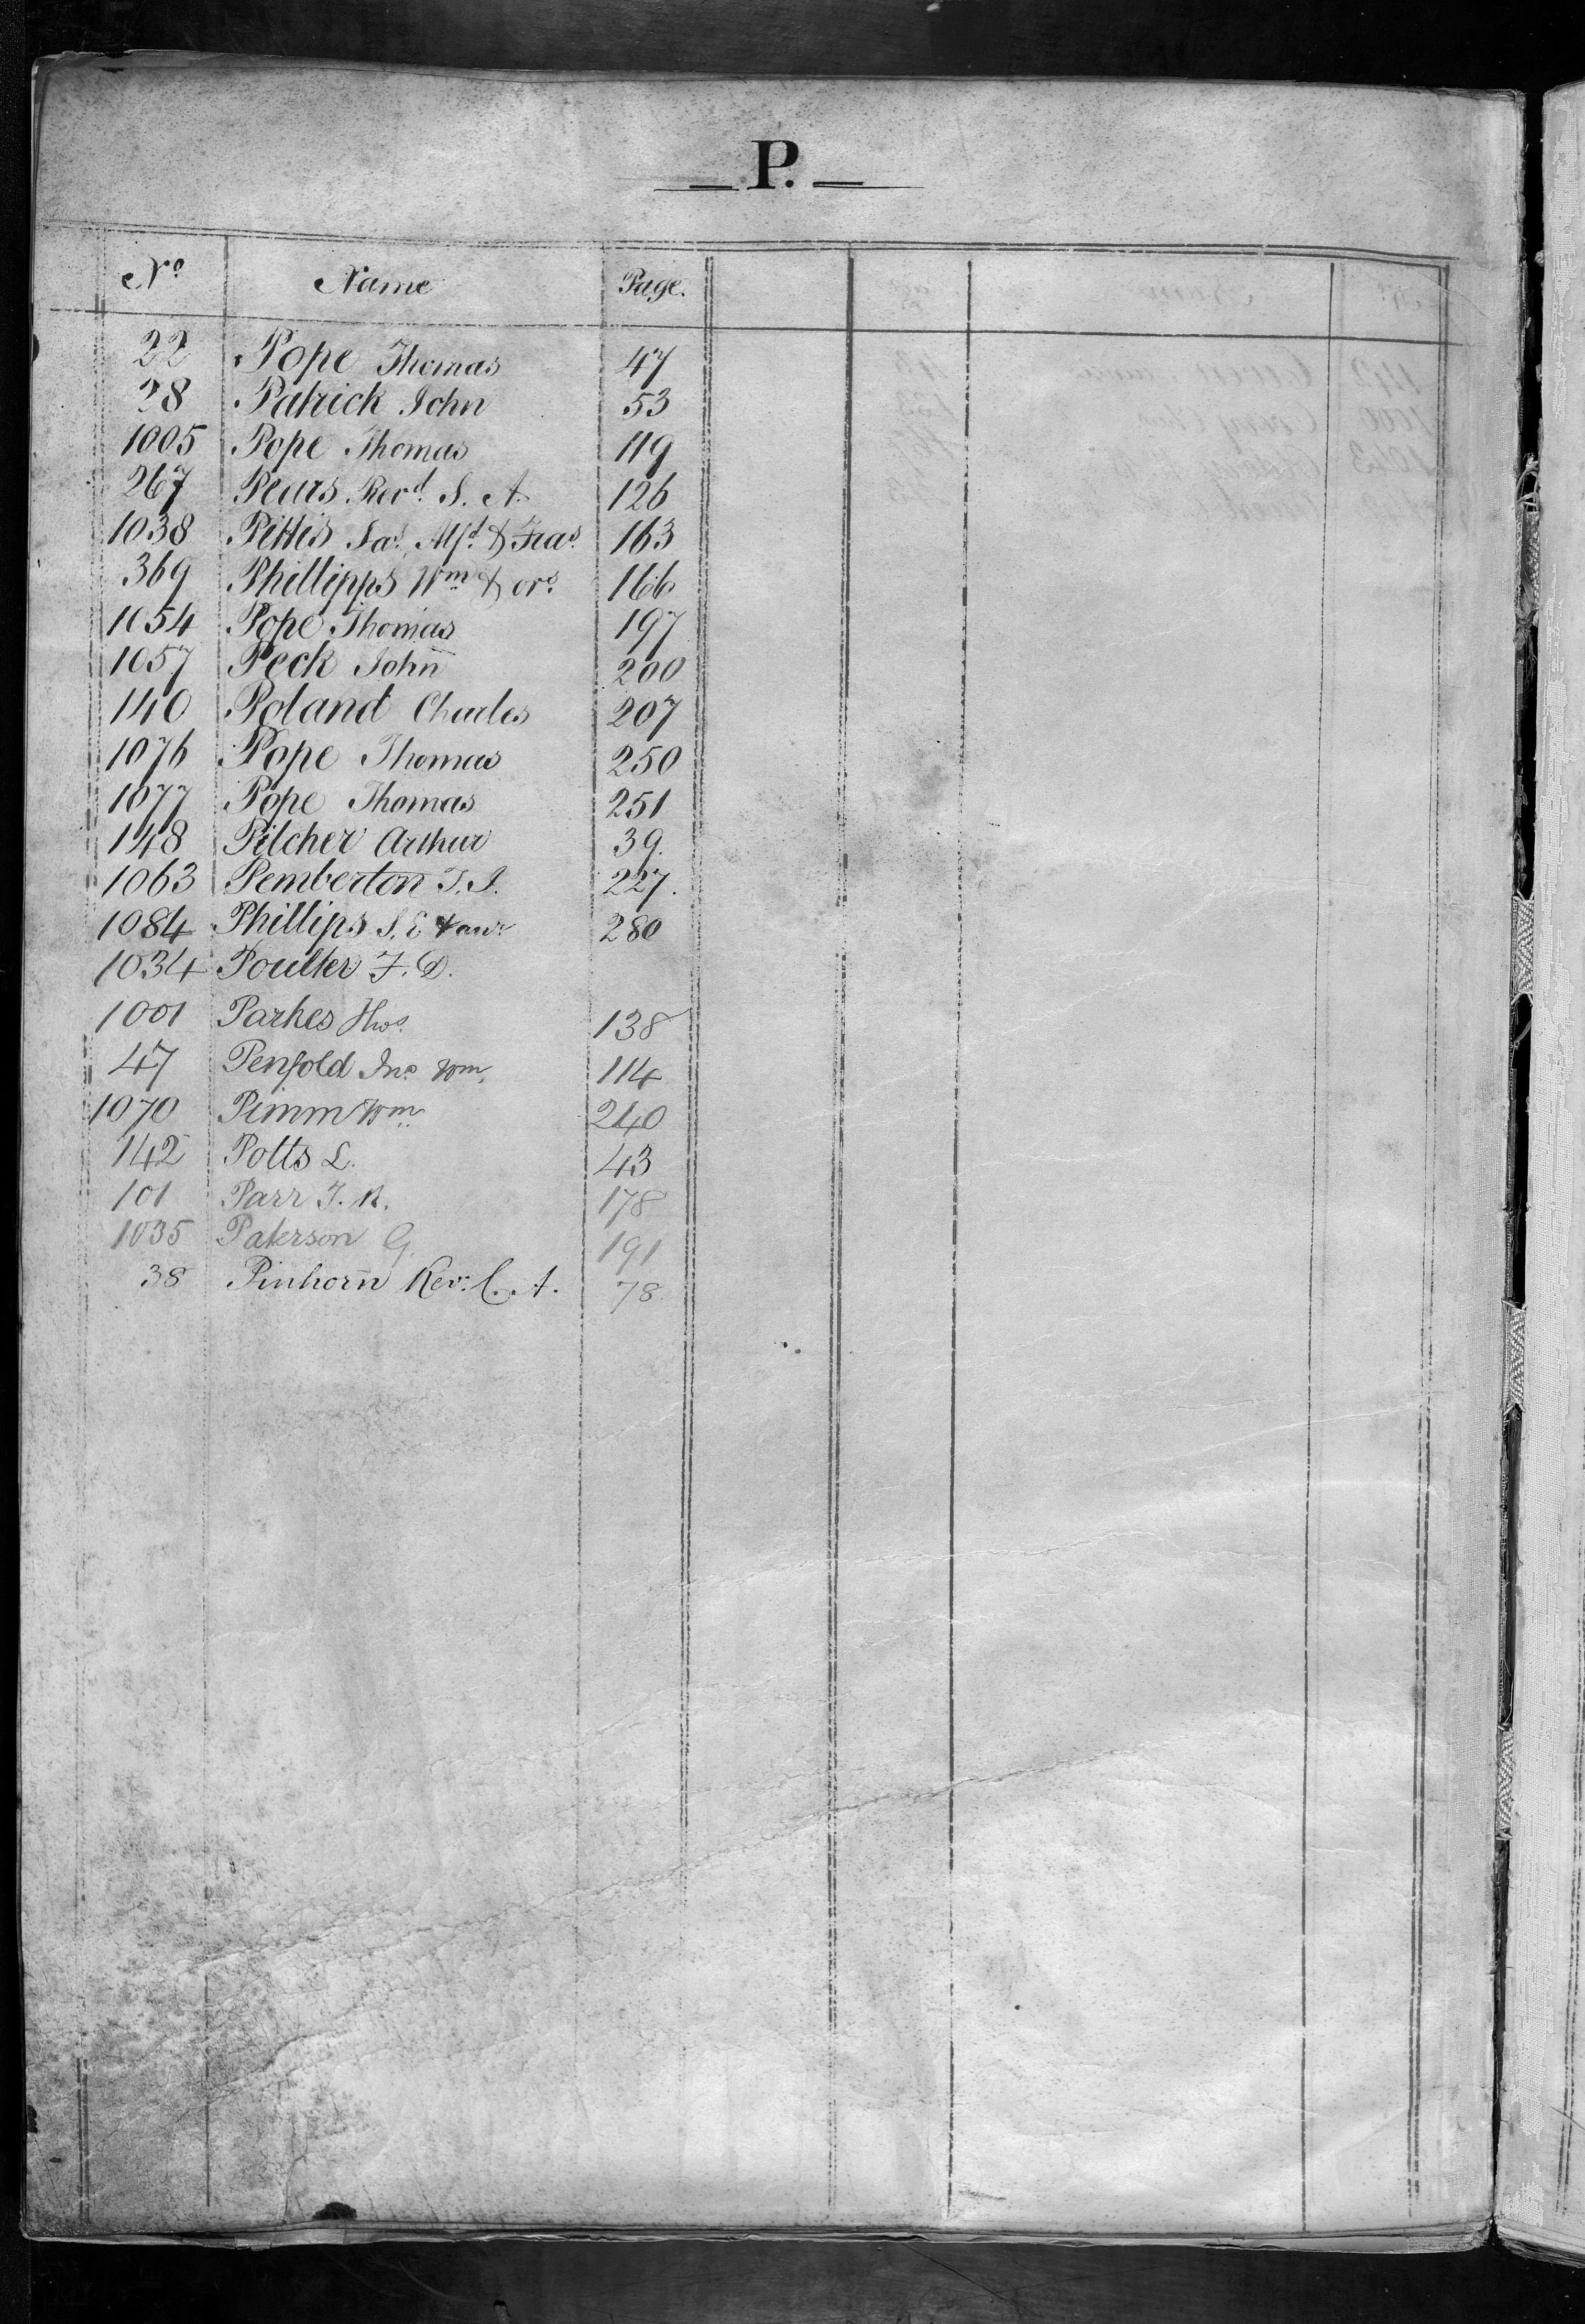 P.
No Name Page.
22 Pope Thomas 47
28 Patrick John 53
1005 Pope Thomas 119
267 Pears Revd. S. A. 126
1038 Pittis Jas. Alfd. & Fras. 163
369 Phillipps Wm. & ors. 166
1054 Pope Thomas 197
1057 Peck John 200
140 Poland Charles 207
1076 Pope Thomas 250
1077 Pope Thomas 251
148 Pilcher Arthur 39.
1063 Pemberton T. J. 227.
1084 Phillips S. E & anr 280
1034 Poulter F. D.
1001 Parkes Thos. 138
47 Penfold Jno. Wm. 114
1070 Pimm Wm. 240
142 Potts L. 43
101 Parr T. R. 178
1035 Paterson G. 191
38 Pinhorn Rev: C. A. 78